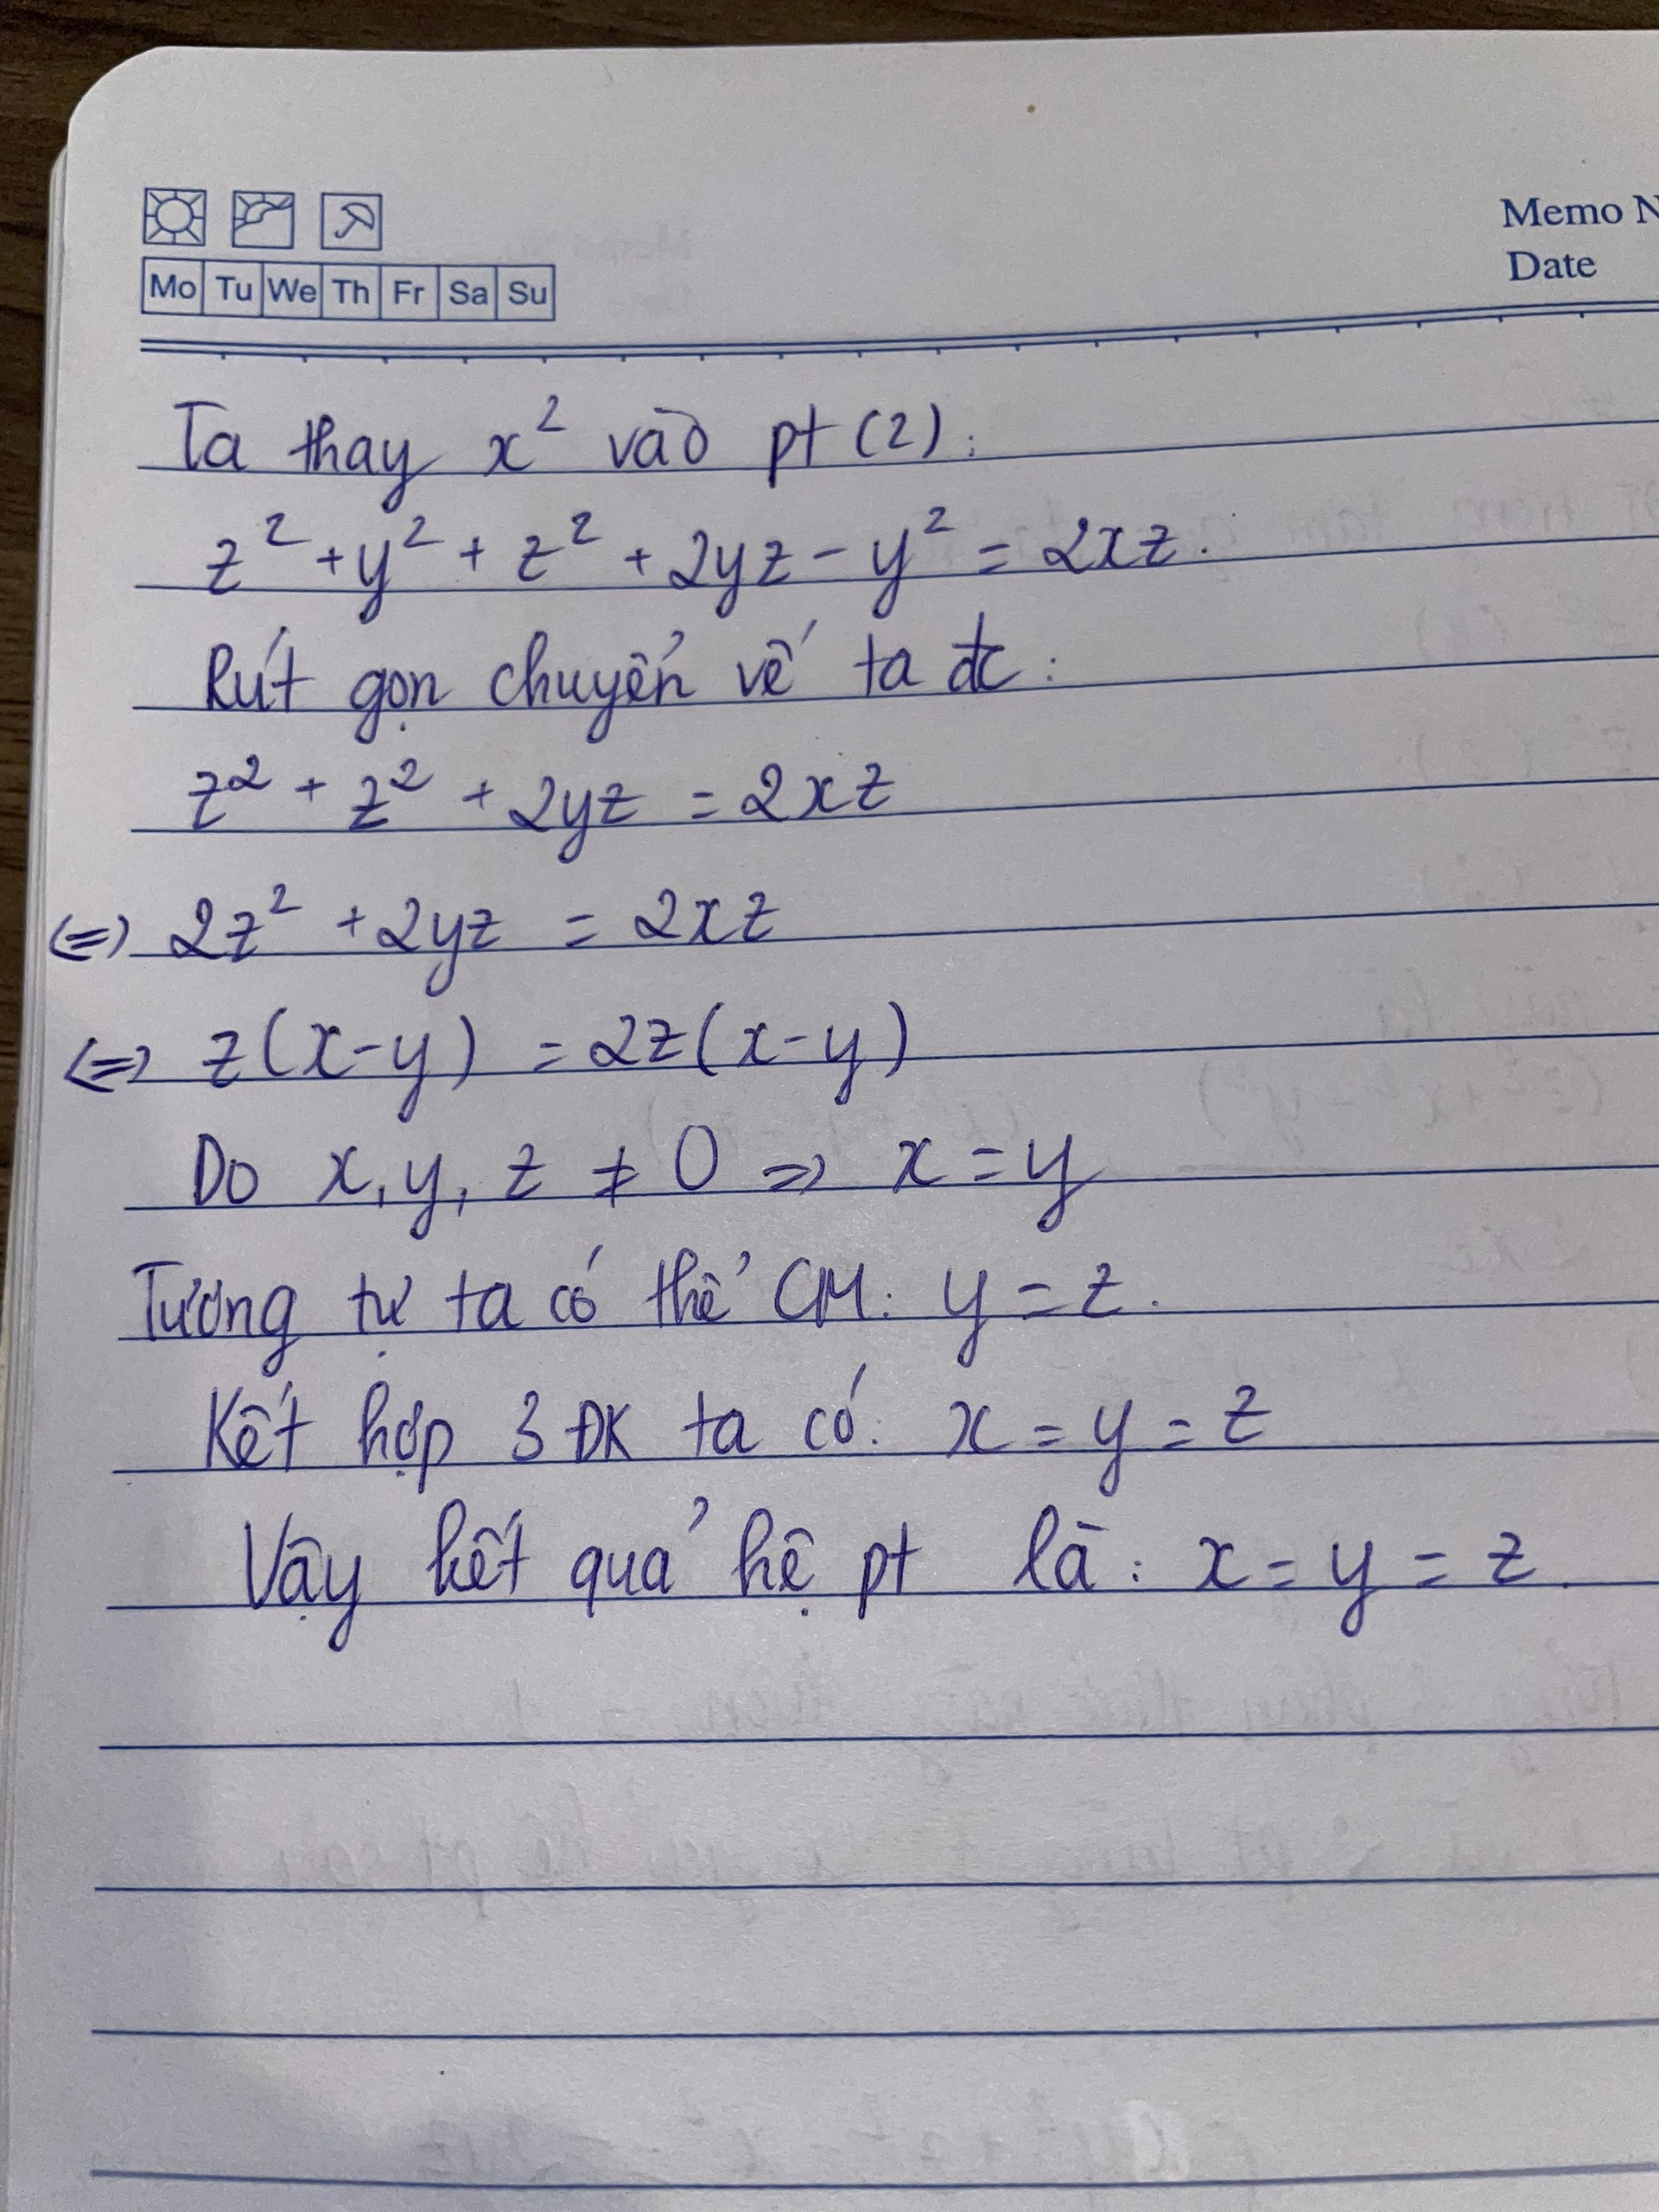 Memo N
Date
Mo Tu We Th Fr Sa Su
Ta thay x² vào pt (2):
z² + y² + z² + 2yz - y² = 2xz.
Rút gọn chuyển vế ta đc:
z² + z² + 2yz = 2xz
(=) 2z² + 2yz = 2xz
(=) z(x-y) = 2z(x-y)
Do x, y, z ≠ 0 => x = y
Tương tự ta có thể CM: y = z.
Kết hợp 3 ĐK ta có: x = y = z
Vậy kết quả hệ pt là: x = y = z.